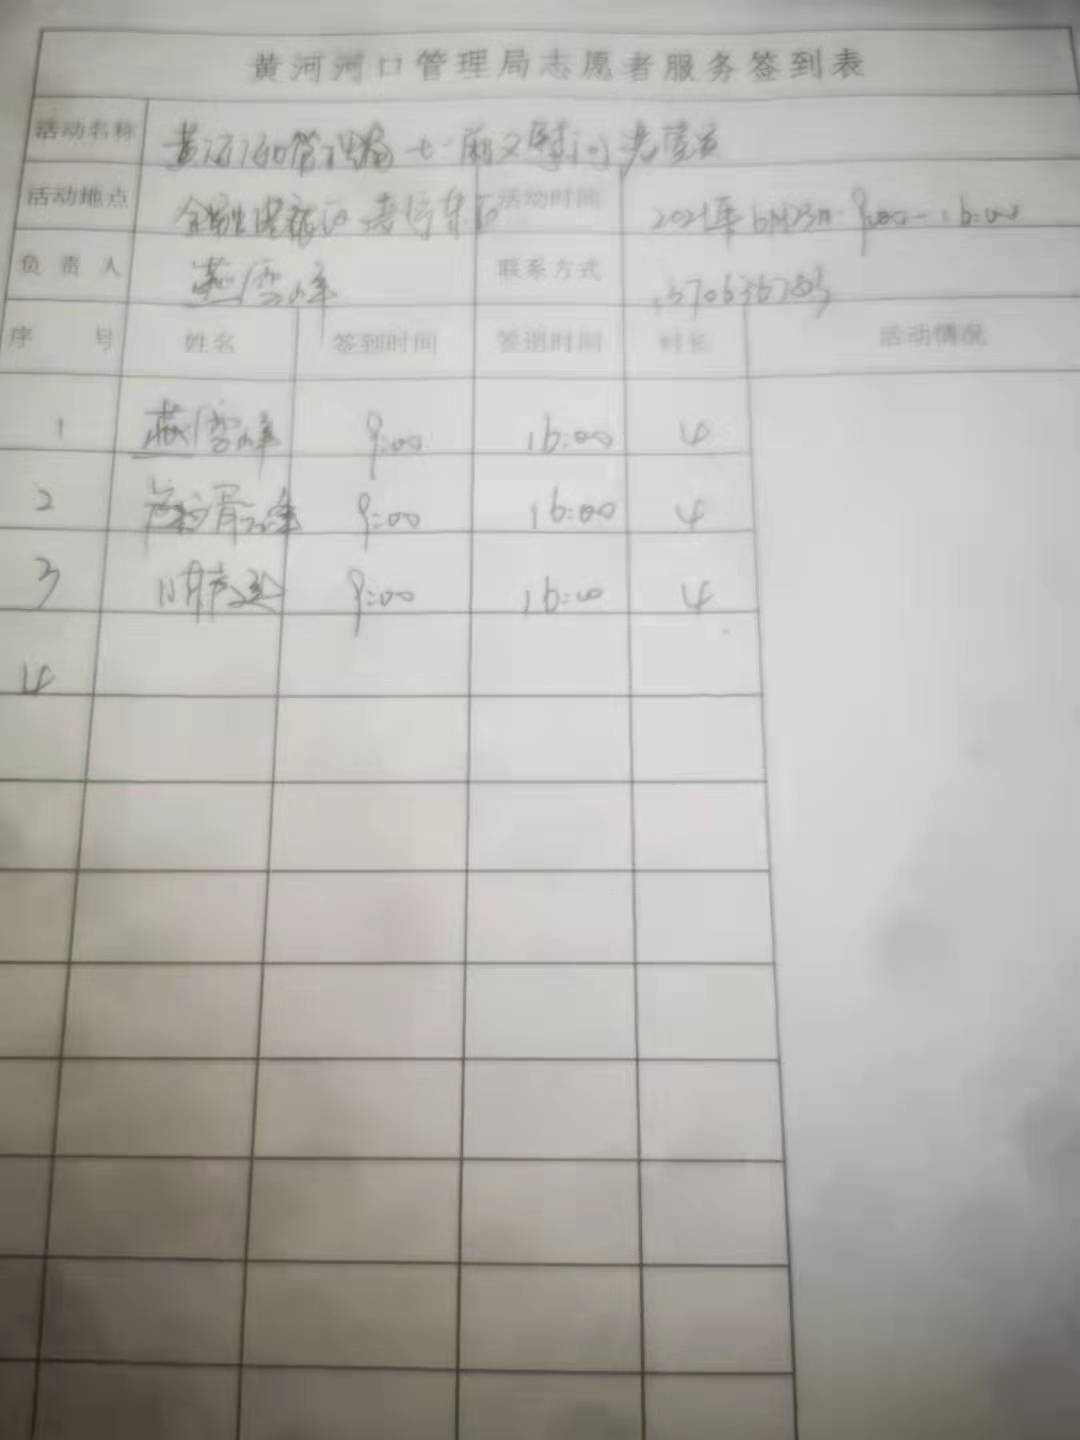 黄河河口管理局志愿者服务签到表
活动名称 黄河河口管理局七一前夕慰问老党员
活动地点 活动时间 2021年6月23日 9:00-16:00
负责人 燕雪峰 联系方式
序号 姓名 签到时间 签退时间 时长 活动情况
1 燕雪峰 9:00 16:00 4
2 9:00 16:00 4
3 9:00 16:00 4
4